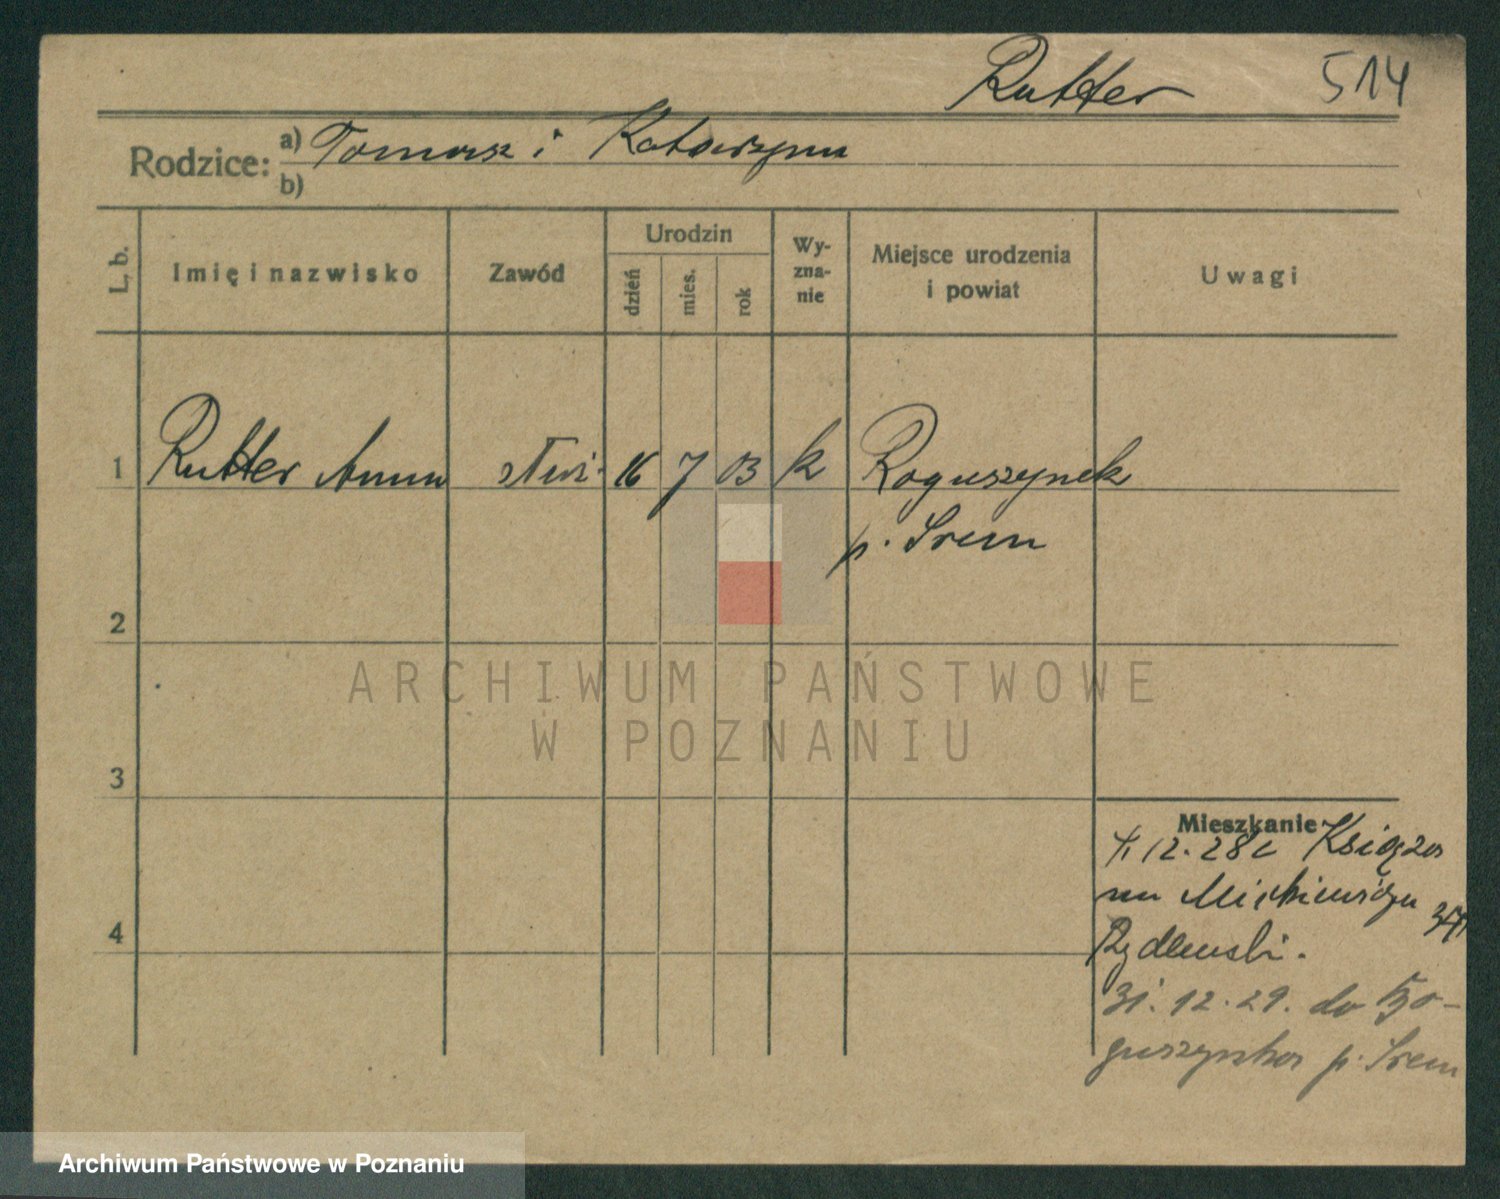 Rutter 514
Rodzice: a) Tomasz i Katarzyna
b)
L. b. Imię i nazwisko Zawód Urodzin dzień mies. rok Wy-zna-nie Miejsce urodzenia i powiat Uwagi
1 Rutter Anna służ. 16 7 03 k Roguszynek
p. Śrem
2
ARCHIWUM PAŃSTWOWE
W POZNANIU
3
Mieszkanie
12. 28 Książa
na Mickiewicza
4 Rydlewski.
31. 12. 29. do Ro-
guszynka p. Śrem
Archiwum Państwowe w Poznaniu